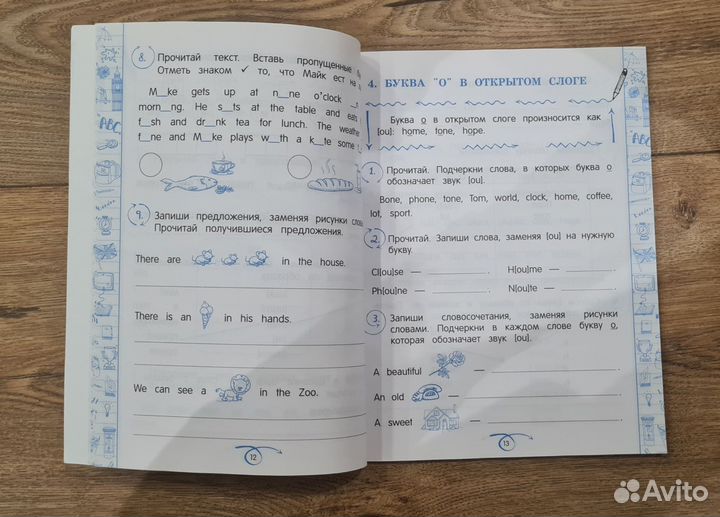 8. Прочитай текст. Вставь пропущенные
Отметь знаком ✓ то, что Майк ест на
M__ke gets up at n__ne o'clock
morn__ng. He s__ts at the table and eats
f__sh and dr__nk tea for lunch. The weather
f__ne and M__ke plays w__th a k__te some
9. Запиши предложения, заменяя рисунки
Прочитай получившиеся предложения.
There are in the house.
There is an in his hands.
We can see a in the Zoo.
12
ABC
4. БУКВА "О" В ОТКРЫТОМ СЛОГЕ
Буква o в открытом слоге произносится как
[ou]: home, tone, hope.
1. Прочитай. Подчеркни слова, в которых буква o
обозначает звук [ou].
Bone, phone, tone, Tom, world, clock, home, coffee,
lot, sport.
2. Прочитай. Запиши слова, заменяя [ou] на нужную
букву.
Cl[ou]se — ____________. H[ou]me — ____________.
Ph[ou]ne — ____________. N[ou]te — ____________.
3. Запиши словосочетания, заменяя рисунки
словами. Подчеркни в каждом слове букву o,
которая обозначает звук [ou].
A beautiful — ____________.
An old — ____________.
A sweet — ____________.
13
ABC
Avito